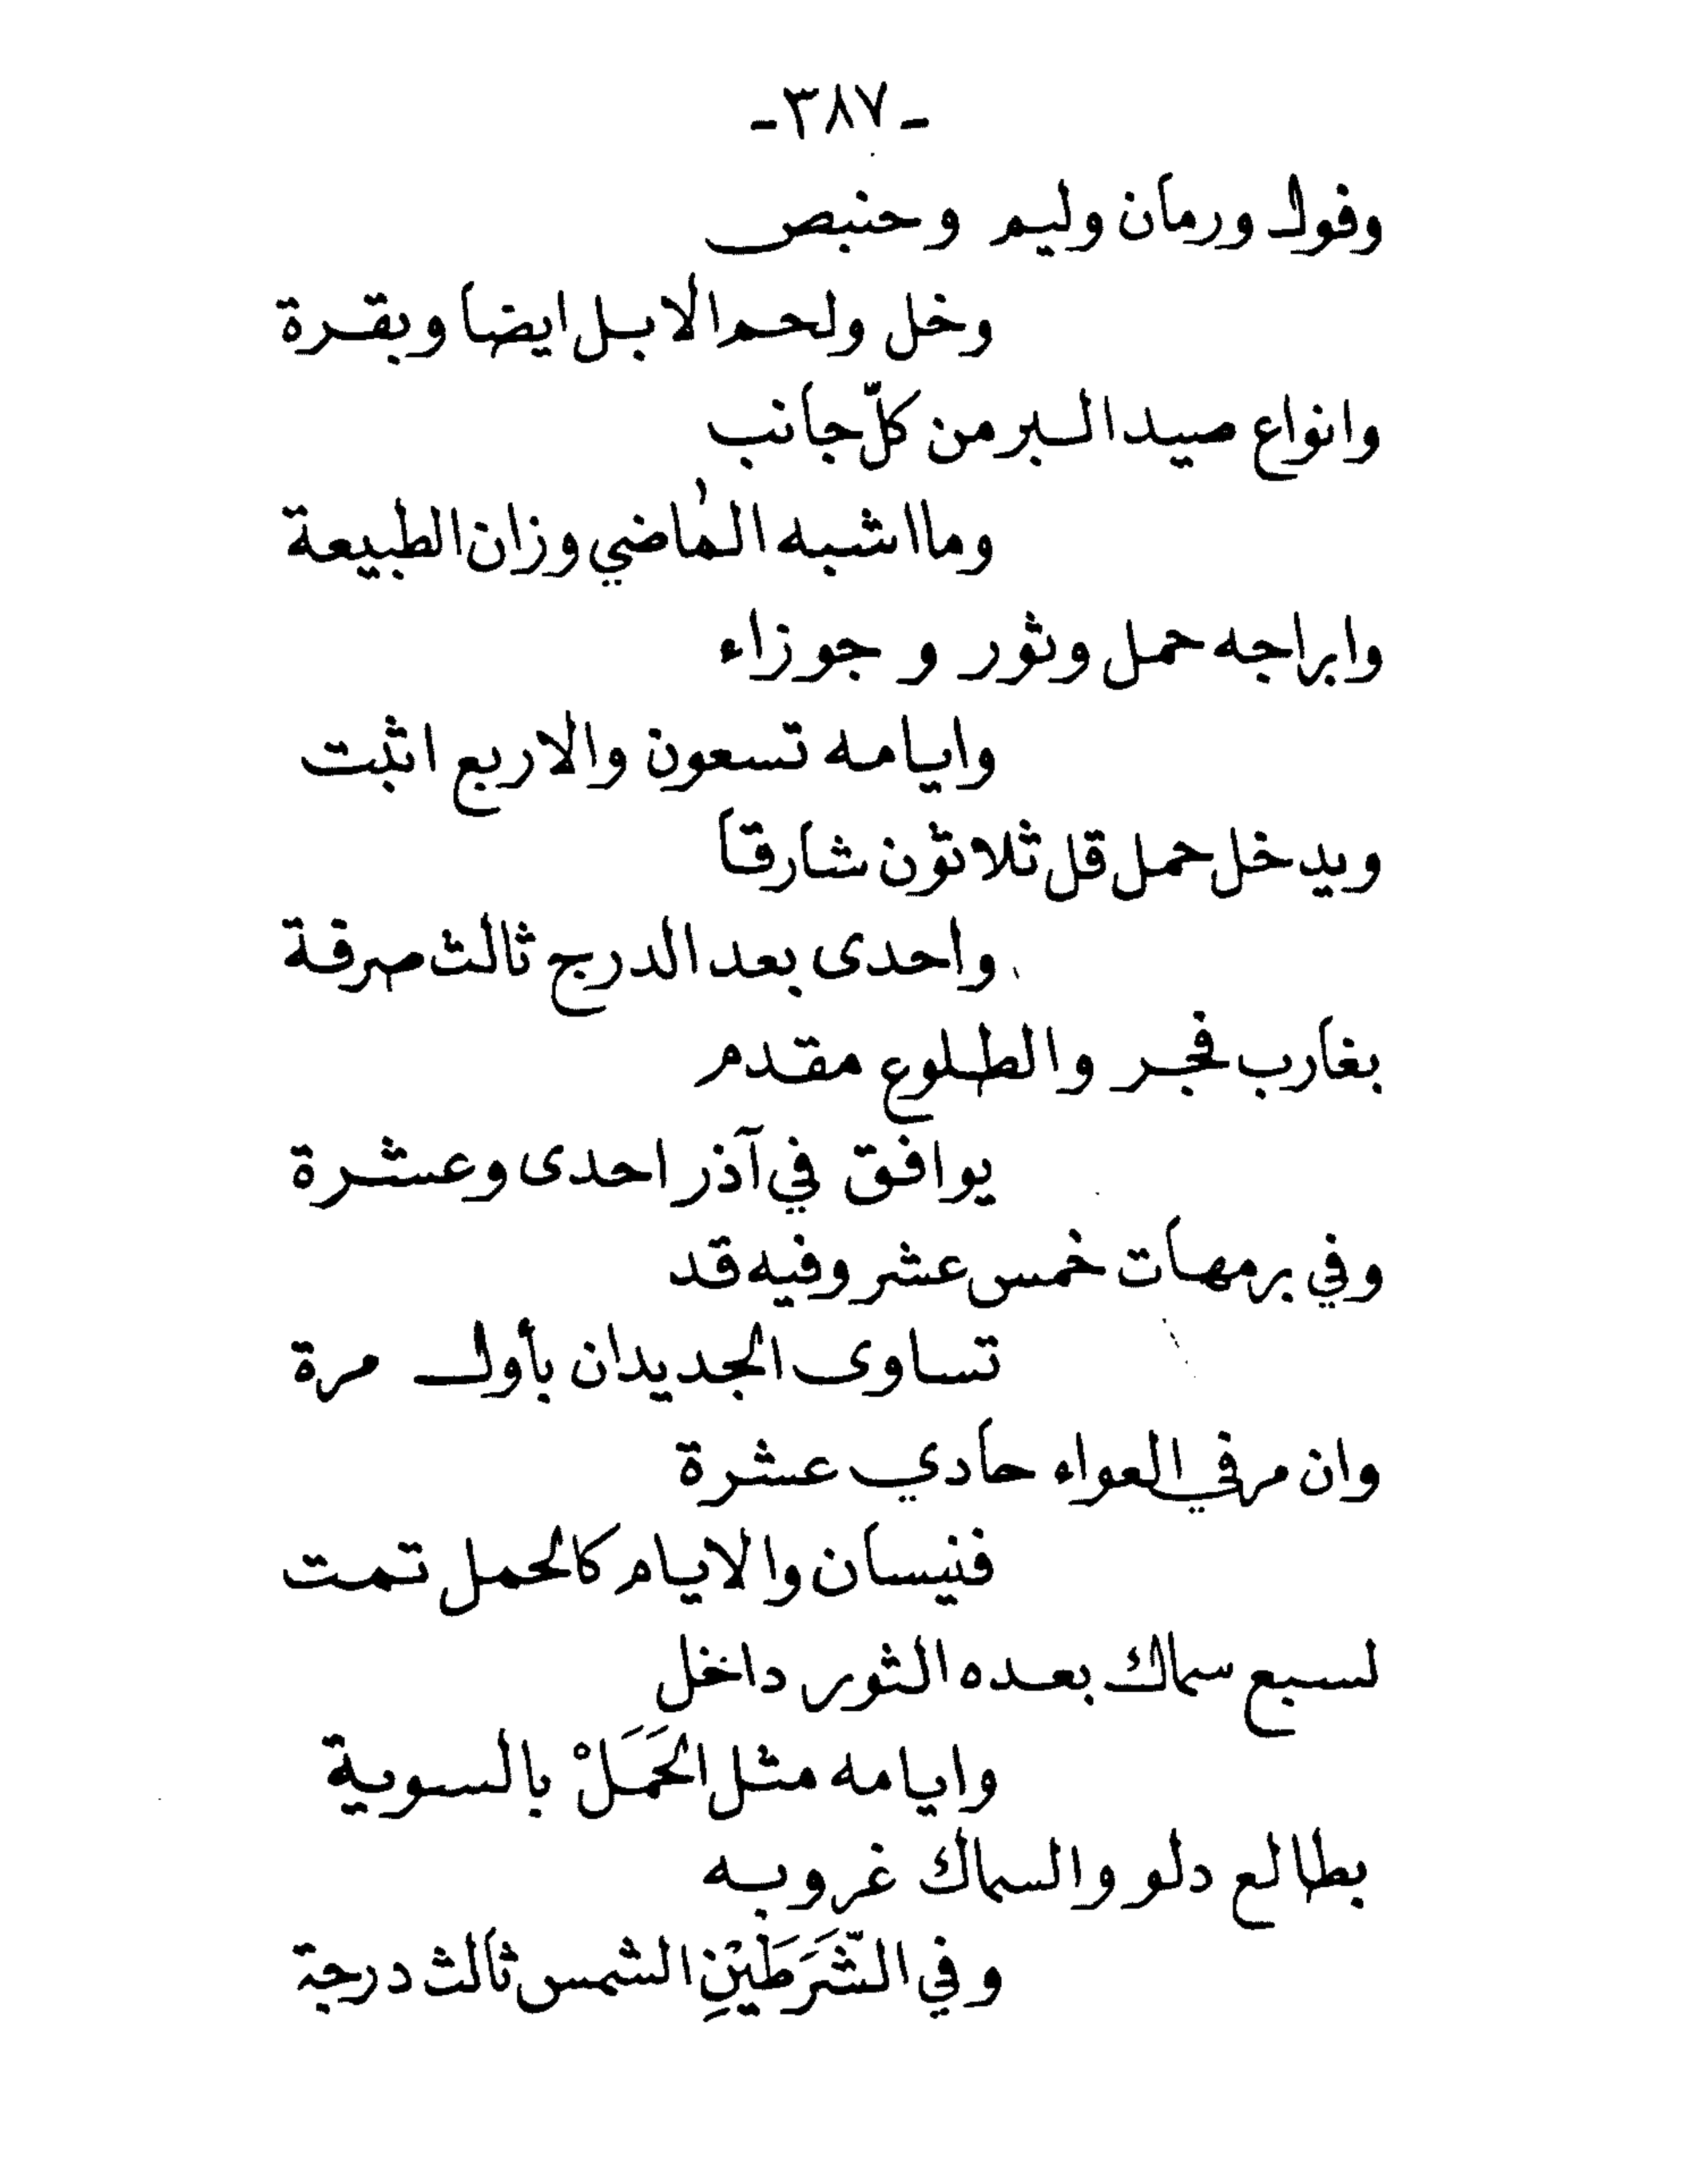 -٣٨٧-
وفول ورمان وليم وحنبص
وخل ولحم الابل ايضا وبقرة
وانواع صيد البر من كلّ جانب
وما اشبه الماضي وزان الطبيعة
وابراجه حمل وثور و جوزاء
وايامه تسعون والاربع اثبت
ويدخل حمل قل ثلاثون شارقا
واحدى بعد الدرج ثالث صرفة
بغارب فجر والطلوع مقدم
يوافق في آذر احدى وعشرة
وفي برمهات خمس عشر وفيه قد
تساوى الجديدان بأول مرة
وان مر في العواء حادي عشرة
فنيسان والايام كالحمل تمت
لسبع سماك بعده الثور داخل
وايامه مثل الحَمَلْ بالسوية
بطالع دلو والسماك غروبه
وفي الشَّرَطَيْنِ الشمس ثالث درجة